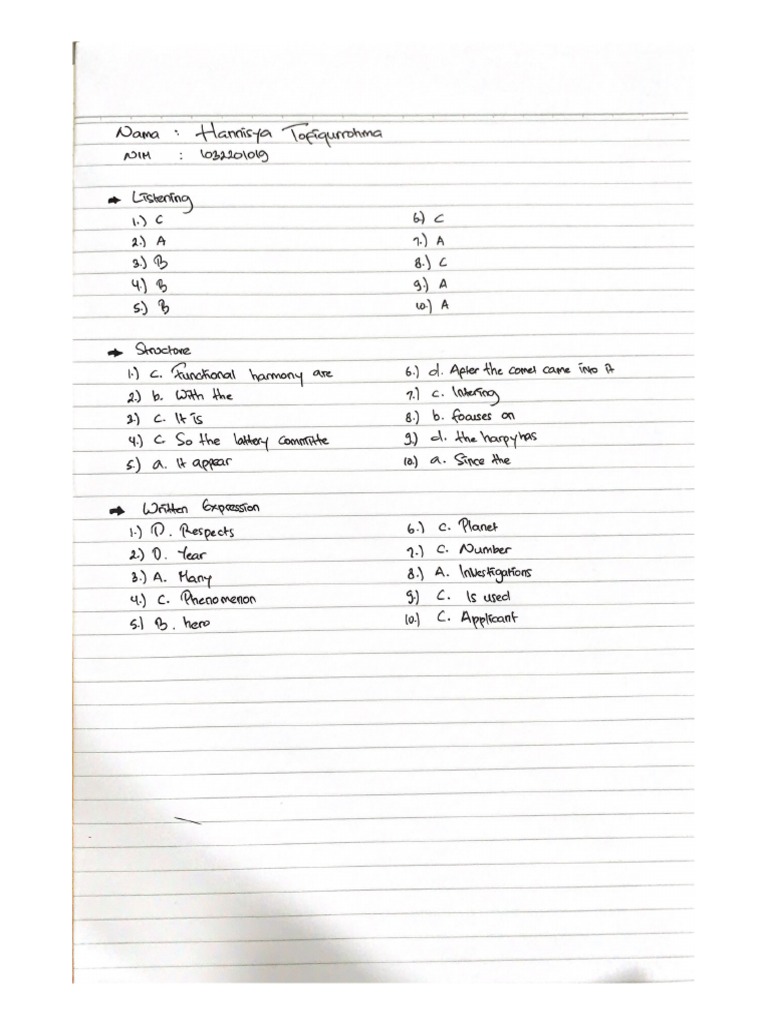 Nama : Hannisya Tofiqurrohma
NIM : 1032201019
→ Listening
1.) C
2.) A
3.) B
4.) B
5.) B
6.) C
7.) A
8.) C
9.) A
10.) A
→ Structure
1.) c. Functional harmony are
2.) b. With the
3.) c. It is
4.) c. So the lottery committe
5.) a. It appear
6.) d. After the comet came into it
7.) c. Intering
8.) b. focuses on
9.) d. the harpy has
10.) a. Since the
→ Written Expression
1.) D. Respects
2.) D. Year
3.) A. Many
4.) C. Phenomenon
5.) B. hero
6.) C. Planet
7.) C. Number
8.) A. Investigations
9.) C. Is used
10.) C. Applicant